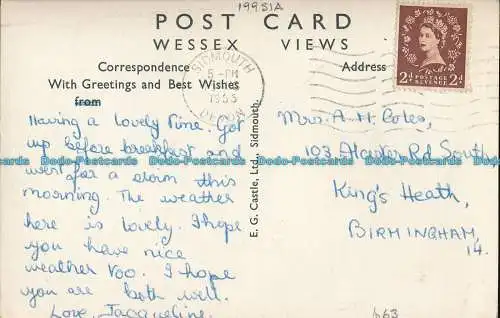 1995IA
POST CARD
WESSEX VIEWS
Correspondence
Address
With Greetings and Best Wishes
from
SIDMOUTH
5-PM
1955
DEVON
POSTAGE REVENUE
2d 2d
Having a lovely time. Got
up before breakfast and
went for a swim this
morning. The weather
here is lovely. I hope
you have nice
weather too. I hope
you are both well.
Love, Jacqueline.
E. G. Castle, Ltd., Sidmouth.
Mrs. A. H. Coles,
103, Rd South,
King's Heath,
BIRMINGHAM,
14.
663
Dodo-Postcards Dodo-Postcards Dodo-Postcards Dodo-Postcards